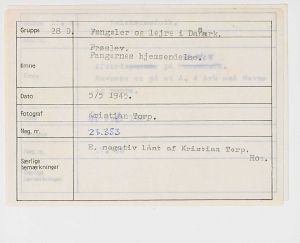 Gruppe 28 D. Fængsler og lejre i Danmark.
Frøslev.
Emne Fangernes hjemsendelse.
Dato 5/5 1945.
Fotograf Kristian Torp.
Neg. nr. 27.883
Særlige bemærkninger E. negativ lånt af Kristian Torp.